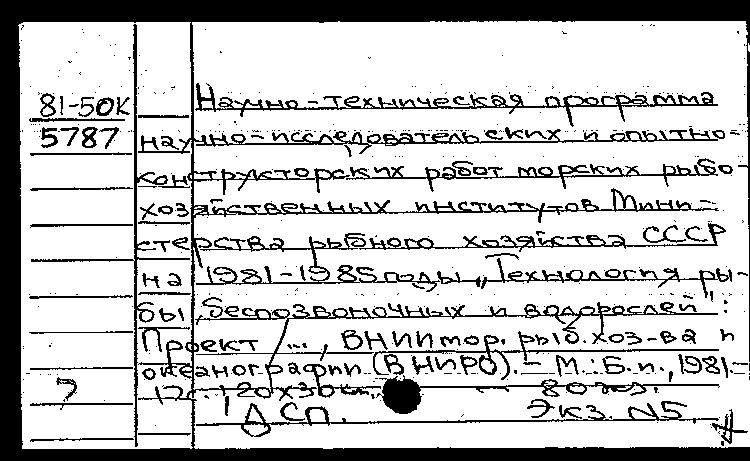 81-50К
5787
Научно-техническая программа
научно-исследовательских и опытно-
конструкторских работ морских рыбо-
хозяйственных институтов Мини-
стерства рыбного хозяйства СССР
на 1981-1985 годы „Технология ры-
бы, беспозвоночных и водорослей":
Проект / ..., ВНИИ мор. рыб. хоз-ва и
океанографии (ВНИРО). – М.: Б.и., 1981.-
12с.; 20х30 см. — 80 экз.
ДСП. Экз. N5.